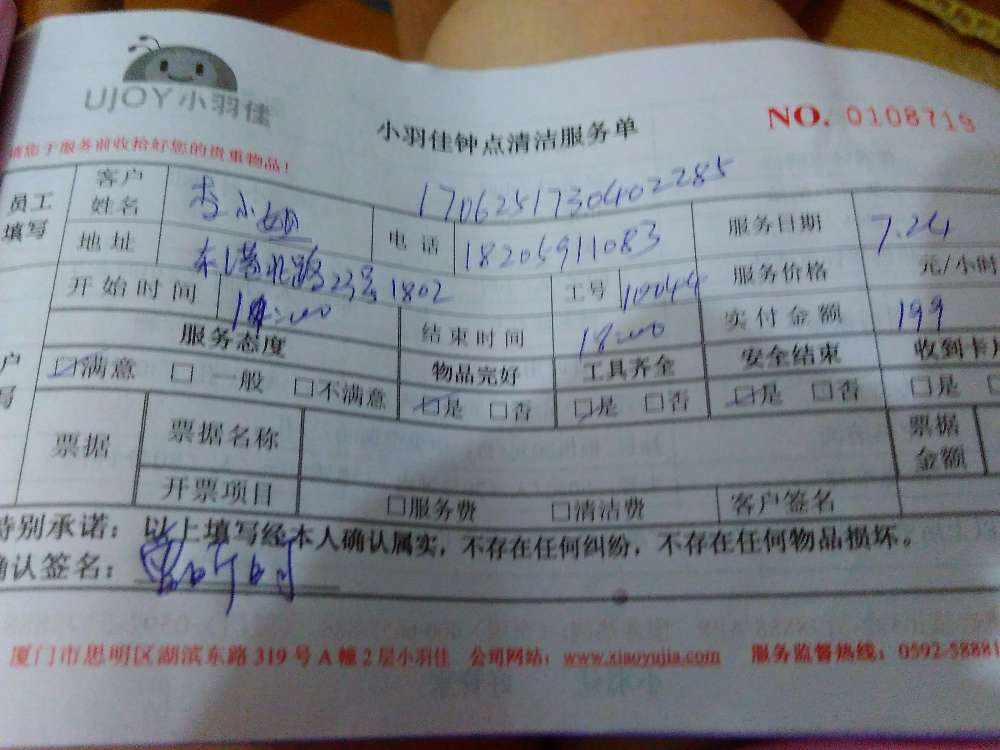 UJOY小羽佳
小羽佳钟点清洁服务单
NO. 0108719
请您于服务前收拾好您的贵重物品！
1706251730402285
员工填写 客户姓名 李小
地址 路23号1802 电话 18205911083 服务日期 7.24
开始时间 工号 服务价格 元/小时
结束时间 18:00 实付金额 199
服务态度 物品完好 工具齐全 安全结束 收到卡
☑满意 □一般 □不满意 ☑是 □否 ☑是 □否 ☑是 □否 □是 □
票据 票据名称 票据金额
开票项目 □服务费 □清洁费 客户签名
特别承诺：以上填写经本人确认属实，不存在任何纠纷，不存在任何物品损坏。
确认签名：
厦门市思明区湖滨东路319号A幢2层小羽佳 公司网站：www.xiaoyujia.com 服务监督热线：0592-58881